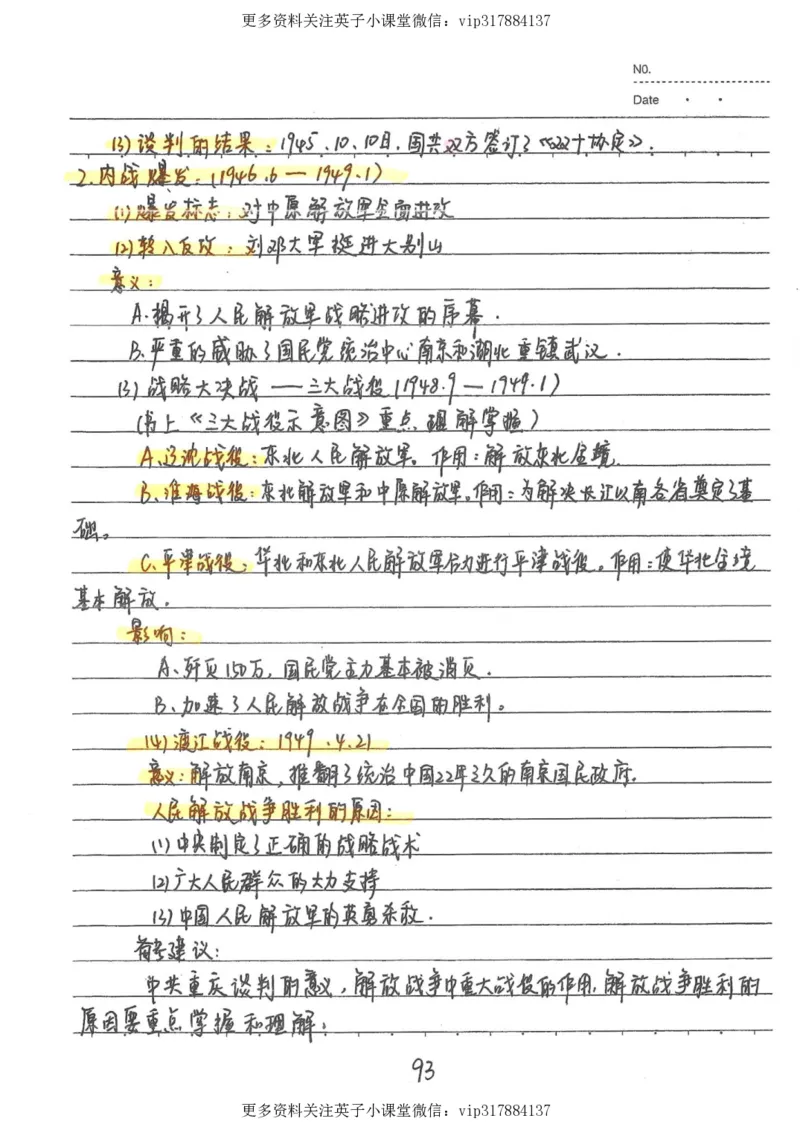 更多资料关注英子小课堂微信：vip317884137
NO.
Date
(3)谈判的结果：1945.10.10日，国共双方签订了《双十协定》.
2.内战爆发：(1946.6—1949.1)
(1)爆发标志：对中原解放军全面进攻
(2)转入反攻：刘邓大军挺进大别山
意义：
A.揭开了人民解放军战略进攻的序幕.
B.严重的威胁了国民党统治中心南京和湖北重镇武汉.
(3)战略大决战——三大战役(1948.9—1949.1)
(书上《三大战役示意图》重点理解掌握)
A.辽沈战役：东北人民解放军。作用：解放东北全境.
B.淮海战役：东北解放军和中原解放军。作用：为解决长江以南各省奠定了基
础。
C.平津战役：华北和东北人民解放军合力进行平津战役。作用：使华北全境
基本解放.
影响：
A.歼灭150万，国民党主力基本被消灭.
B.加速了人民解放战争在全国的胜利。
(4)渡江战役：1949.4.21
意义：解放南京，推翻了统治中国22年之久的南京国民政府.
人民解放战争胜利的原因：
(1)中央制定了正确的战略战术
(2)广大人民群众的大力支持
(3)中国人民解放军的英勇杀敌.
备考建议：
中共重庆谈判的意义，解放战争中重大战役的作用，解放战争胜利的
原因要重点掌握和理解；
93
更多资料关注英子小课堂微信：vip317884137